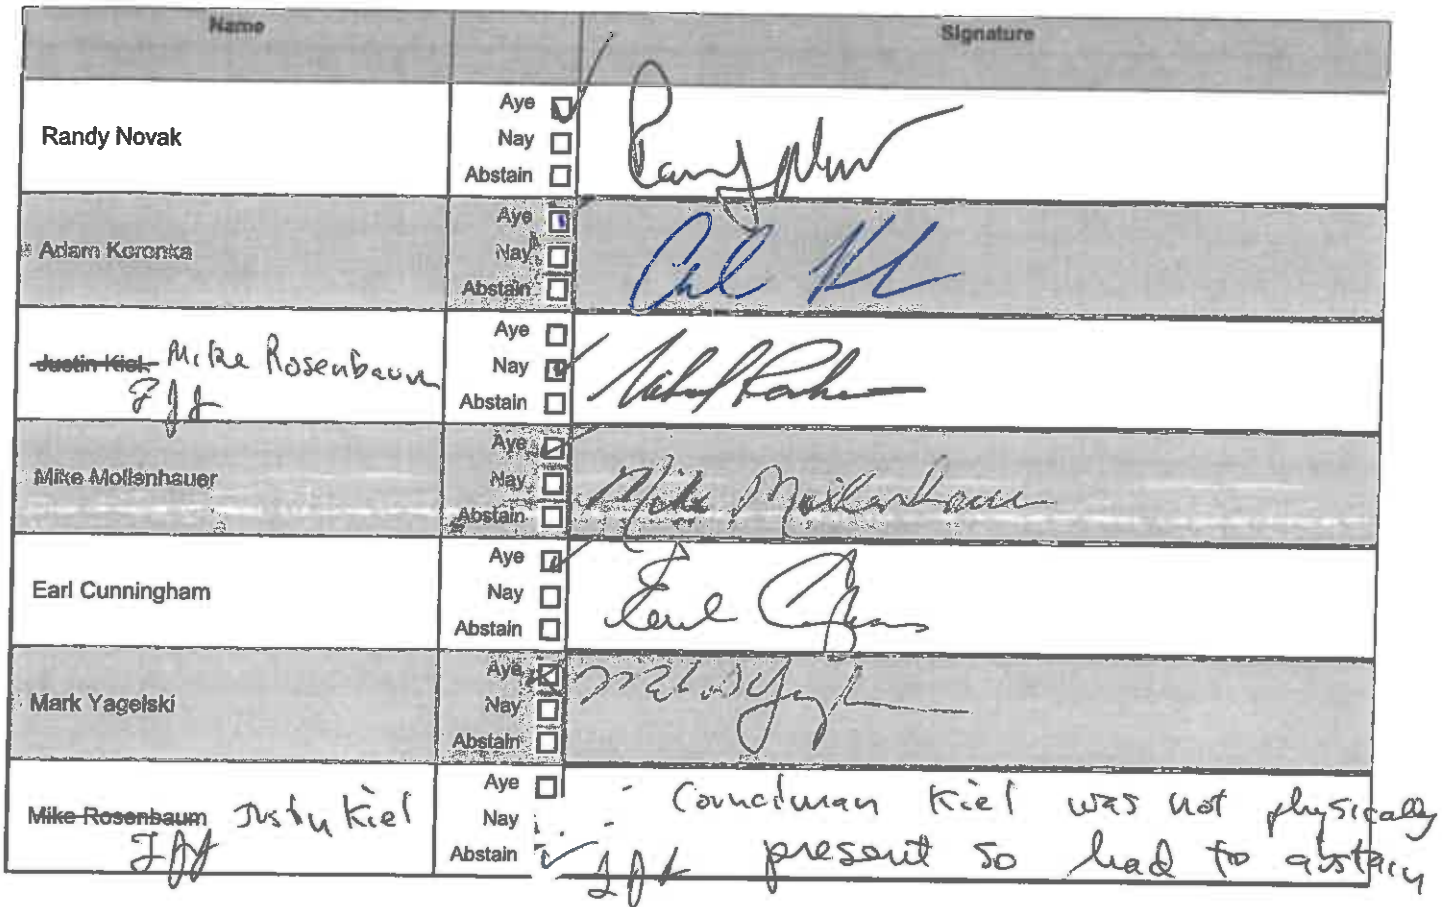 Name Signature
Randy Novak
Aye
Nay
Abstain
Adam Koronka
Aye
Nay
Abstain
Justin Kiel Mike Rosenbaum
Aye
Nay
Abstain
Mike Mollenhauer
Aye
Nay
Abstain
Mike Mollenhauer
Earl Cunningham
Aye
Nay
Abstain
Mark Yagelski
Aye
Nay
Abstain
Mike Rosenbaum Justin Kiel
Aye
Nay
Abstain
Councilman Kiel was not physically
present so had to abstain